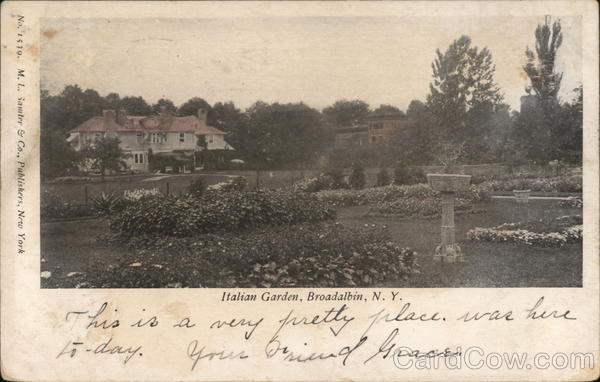 No. 1539. M. L. Samter & Co., Publishers, New York
Italian Garden, Broadalbin, N. Y.
This is a very pretty place. was here
to-day. Your Friend Grace.
CardCow.com